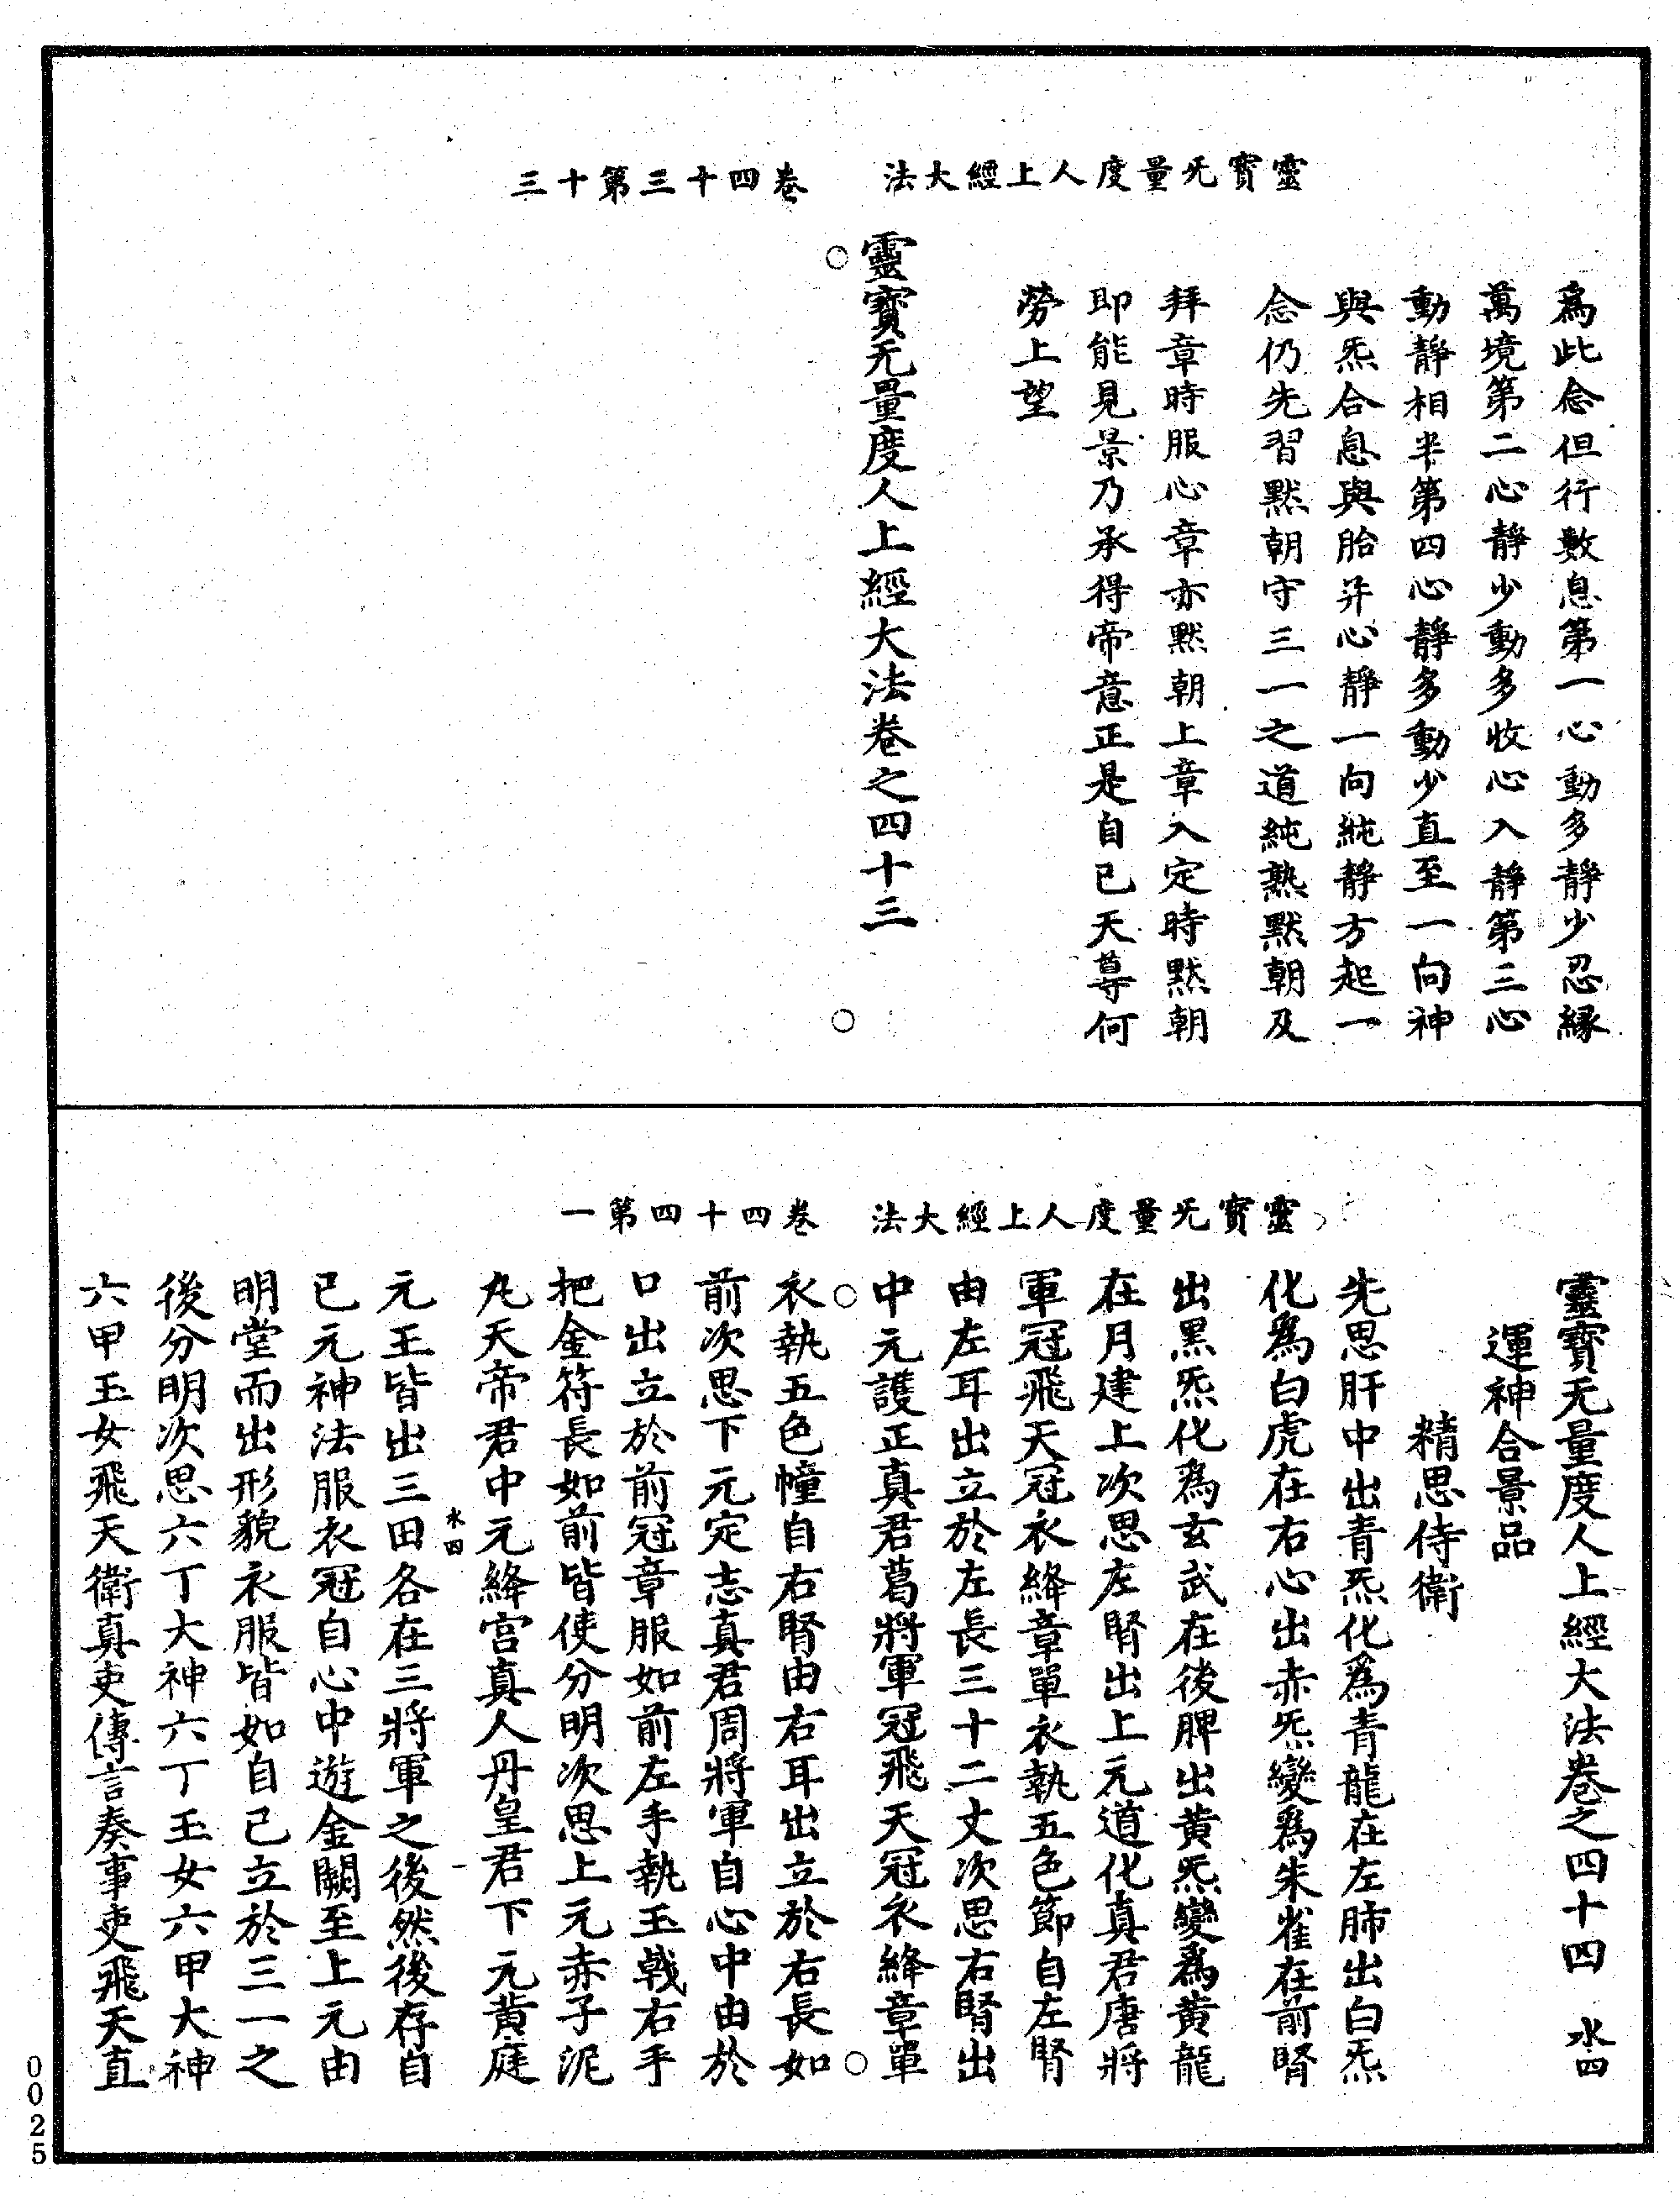 靈寶旡量度人上經大法　卷四十三第十三
為此念但行數息第一心動多靜少忍緣
萬境第二心靜少動多收心入靜第三心
動靜相半第四心靜多動少直至一向神
與炁合息與胎并心靜一向純靜方起一
念仍先習默朝守三一之道純熟默朝及
拜章時服心章亦默朝上章入定時默朝
即能見景乃承得帝意正是自已天尊何
勞上望
靈寶无量度人上經大法卷之四十三
靈寶旡量度人上經大法　卷四十四第一
靈寶无量度人上經大法卷之四十四　水四
運神合景品
精思侍衛
先思肝中出青炁化為青龍在左肺出白炁
化為白虎在右心出赤炁變為朱雀在前腎
出黑炁化為玄武在後脾出黃炁變為黃龍
在月建上次思左腎出上元道化真君唐將
軍冠飛天冠衣絳章單衣執五色節自左腎
由左耳出立於左長三十二丈次思右腎出
中元護正真君葛將軍冠飛天冠衣絳章單
衣執五色幢自右腎由右耳出立於右長如
前次思下元定志真君周將軍自心中由於
口出立於前冠章服如前左手執玉戟右手
把金符長如前皆使分明次思上元赤子泥
丸天帝君中元絳宮真人丹皇君下元黃庭
水四
元王皆出三田各在三將軍之後然後存自
已元神法服衣冠自心中遊金闕至上元由
明堂而出形貌衣服皆如自己立於三一之
後分明次思六丁大神六丁玉女六甲大神
六甲玉女飛天衛真吏傳言奏事吏飛天直
0025